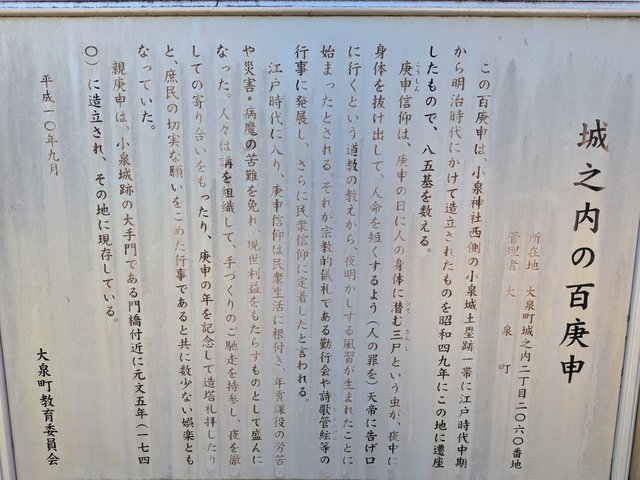 城之内の百庚申
所在地 大泉町城之内二丁目二〇六〇番地
管理者 大泉町
この百庚申は、小泉神社西側の小泉城土塁跡一帯に江戸時代中期
から明治時代にかけて造立されたものを昭和四九年にこの地に遷座
したもので、八五基を数える。
庚申信仰は、庚申の日に人の身体に潜む三尸という虫が、夜中に
身体を抜け出して、人命を短くするよう（人の罪を）天帝に告げ口
に行くという道教の教えから、夜明かしする風習が生まれたことに
始まったとされる。それが宗教的儀礼である勤行会や詩歌管絃等の
行事に発展し、さらに民衆信仰に定着したと言われる。
江戸時代に入り、庚申信仰は民衆生活に根付き、年貢課役の労苦
や災害・病魔の苦難を免れ、現世利益をもたらすものとして盛んに
なった。人々は講を組織して、手づくりのご馳走を持参し、夜を徹
しての寄り合いをもったり、庚申の年を記念して造塔礼拝したり
と、庶民の切実な願いをこめた行事であると共に数少ない娯楽とも
なっていた。
親庚申は、小泉城跡の大手門である門橋付近に元文五年（一七四
〇）に造立され、その地に現存している。
平成一〇年九月
大泉町教育委員会